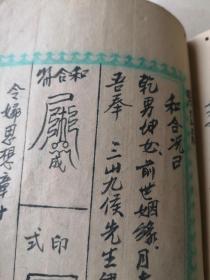 和合咒曰
乾男坤女前世姻緣月
吾奉三山九侯先生
和合符
成
印式
令婦思想章